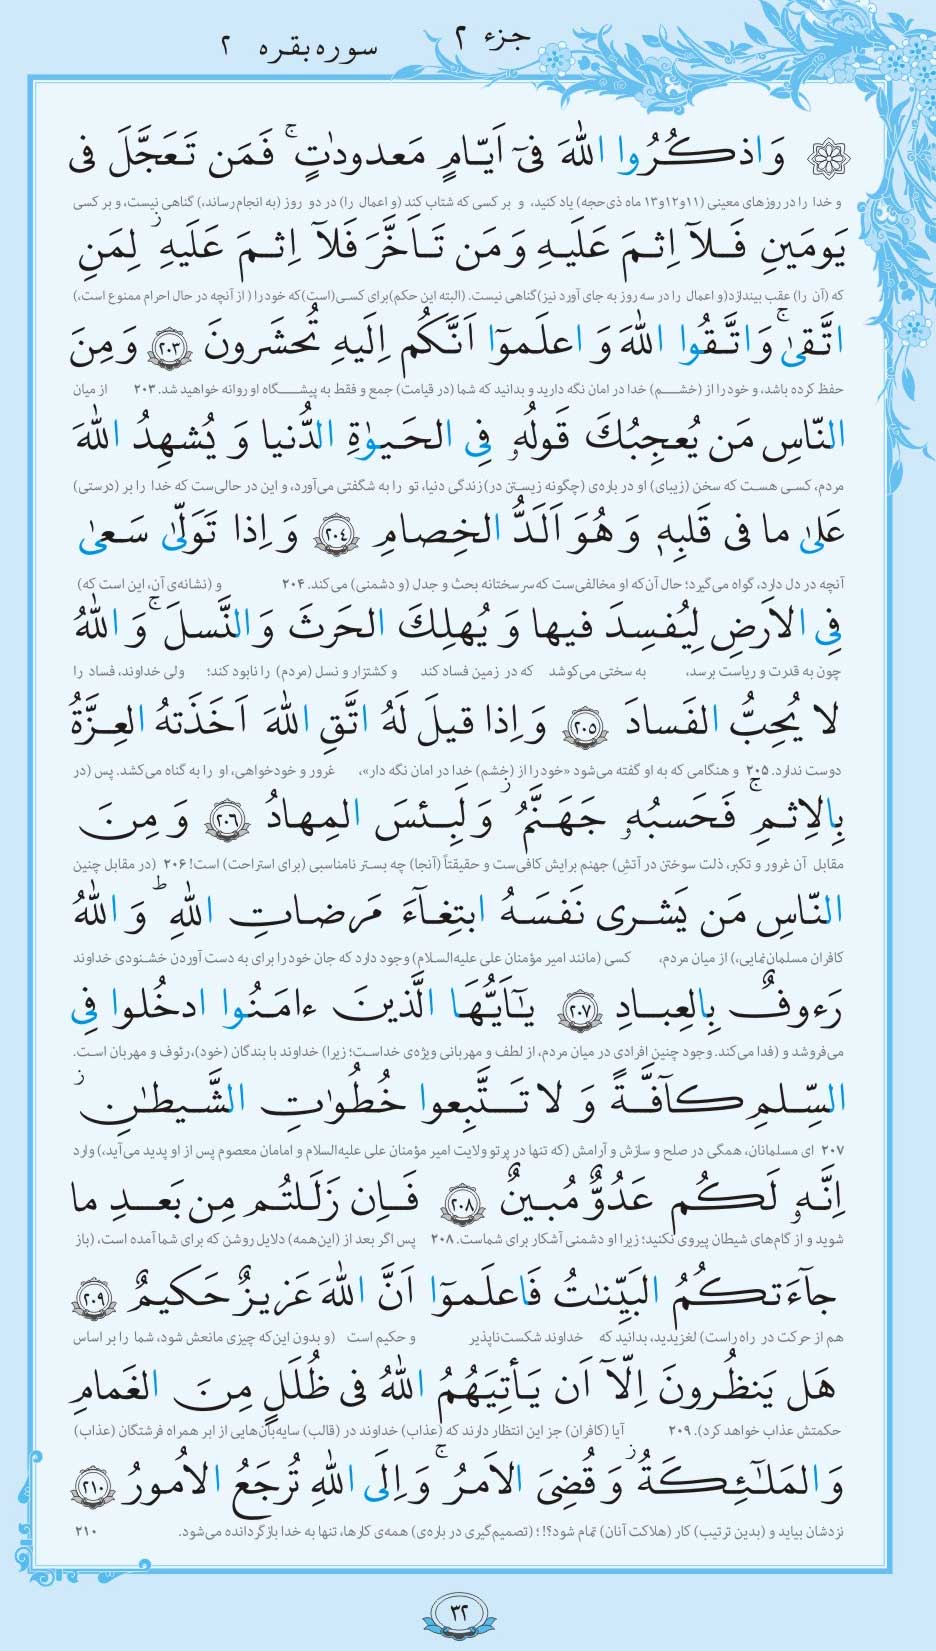 جزء ۲
سوره بقره ۲
وَاذكُرُوا اللّٰهَ فىٓ اَيّامٍ مَعدودٰتٍۚ فَمَن تَعَجَّلَ فى
و خدا را در روزهای معینی (۱۱و۱۲و۱۳ ماه ذی‌حجه) یاد کنید، و بر کسی که شتاب کند (و اعمال را) در دو روز (به انجام رساند،) گناهی نیست، و بر کسی
يَومَينِ فَلآ اِثمَ عَلَيهِ وَ مَن تَاَخَّرَ فَلآ اِثمَ عَلَيهِ ۙز لِمَنِ
که (آن را) عقب بیندازد(و اعمال را در سه روز به جای آورد نیز)گناهی نیست. (البته این حکم)برای کسی(است)که خود را ( از آنچه در حال احرام ممنوع است،)
اتَّقىٰۚ وَاتَّقُوا اللّٰهَ وَ اعلَموٓا اَنَّكُم اِلَيهِ تُحشَرونَ ۲۰۳ وَ مِنَ
حفظ کرده باشد، و خود را از (خشم) خدا در امان نگه دارید و بدانید که شما (در قیامت) جمع و فقط به پیشگاه او روانه خواهید شد. ۲۰۳ از میان
النّاسِ مَن يُعجِبُكَ قَولُهٗ فِى الحَيوٰةِ الدُّنيا وَ يُشهِدُ اللّٰهَ
مردم، کسی هست که سخن (زیبای) او در باره‌ی (چگونه زیستن در)زندگی دنیا، تو را به شگفتی می‌آورد، و این در حالی‌ست که خدا را بر (درستی)
عَلىٰ ما فى قَلبِهٖ وَ هُوَ اَلَدُّ الخِصامِ ۲۰۴ وَ اِذا تَوَلّىٰ سَعىٰ
آنچه در دل دارد، گواه می‌گیرد؛ حال آن‌که او مخالفی‌ست که سرسختانه بحث و جدل (و دشمنی) می‌کند. ۲۰۴ و (نشانه‌ی آن، این است که)
فِى الاَرضِ لِيُفسِدَ فيها وَ يُهلِكَ الحَرثَ وَالنَّسلَۚ وَ اللّٰهُ
چون به قدرت و ریاست برسد، به سختی می‌کوشد که در زمین فساد کند و کشتزار و نسل (مردم) را نابود کند؛ ولی خداوند، فساد را
لا يُحِبُّ الفَسادَ ۲۰۵ وَ اِذا قيلَ لَهُ اتَّقِ اللّٰهَ اَخَذَتهُ العِزَّةُ
دوست ندارد. ۲۰۵ و هنگامی که به او گفته می‌شود «خود را از (خشم) خدا در امان نگه دار»، غرور و خودخواهی، او را به گناه می‌کشد. پس (در
بِالاِثمِۚ فَحَسبُهٗ جَهَنَّمُ ز وَ لَبِئسَ المِهادُ ۲۰۶ وَ مِنَ
مقابل آن غرور و تکبر، ذلت سوختن در آتش) جهنم برایش کافی‌ست و حقیقتاً (آنجا) چه بستر نامناسبی (برای استراحت) است! ۲۰۶ (در مقابل چنین
النّاسِ مَن يَشرى نَفسَهُ ابتِغآءَ مَرضاتِ اللّٰهِ ط وَ اللّٰهُ
کافران مسلمان‌نمایی،) از میان مردم، کسی (مانند امیر مؤمنان علی علیه‌السلام) وجود دارد که جان خود را برای به دست آوردن خشنودی خداوند
رَءوفٌ بِالعِبادِ ۲۰۷ يٰٓاَيُّهَا الَّذينَ ءامَنُوا ادخُلوا فِى
می‌فروشد و (فدا می‌کند. وجود چنین افرادی در میان مردم، از لطف و مهربانی ویژه‌ی خداست؛ زیرا) خداوند با بندگان (خود)، رئوف و مهربان است.
السِّلمِ كآفَّةً وَ لا تَتَّبِعوا خُطُوٰتِ الشَّيطٰنِ ز
۲۰۷ ای مسلمانان، همگی در صلح و سازش و آرامش (که تنها در پرتو ولایت امیر مؤمنان علی علیه‌السلام و امامان معصوم پس از او پدید می‌آید،) وارد
اِنَّهٗ لَكُم عَدُوٌّ مُبينٌ ۲۰۸ فَاِن زَلَلتُم مِن بَعدِ ما
شوید و از گام‌های شیطان پیروی نکنید؛ زیرا او دشمنی آشکار برای شماست. ۲۰۸ پس اگر بعد از (این‌همه) دلایل روشن که برای شما آمده است، (باز
جآءَتكُمُ البَيِّنٰتُ فَاعلَموٓا اَنَّ اللّٰهَ عَزيزٌ حَكيمٌ ۲۰۹
هم از حرکت در راه راست) لغزیدید، بدانید که خداوند شکست‌ناپذیر و حکیم است (و بدون این‌که چیزی مانعش شود، شما را بر اساس
هَل يَنظُرونَ اِلّآ اَن يَأتِيَهُمُ اللّٰهُ فى ظُلَلٍ مِنَ الغَمامِ
حکمتش عذاب خواهد کرد). ۲۰۹ آیا (کافران) جز این انتظار دارند که (عذاب) خداوند در (قالب) سایه‌بان‌هایی از ابر همراه فرشتگان (عذاب)
وَ المَلٰٓئِكَةُ ز وَ قُضِىَ الاَمرُۚ وَ اِلَى اللّٰهِ تُرجَعُ الاُمورُ ۲۱۰
نزدشان بیاید و (بدین ترتیب) کار (هلاکت آنان) تمام شود؟!؛ (تصمیم‌گیری در باره‌ی) همه‌ی کارها، تنها به خدا بازگردانده می‌شود. ۲۱۰
۳۲